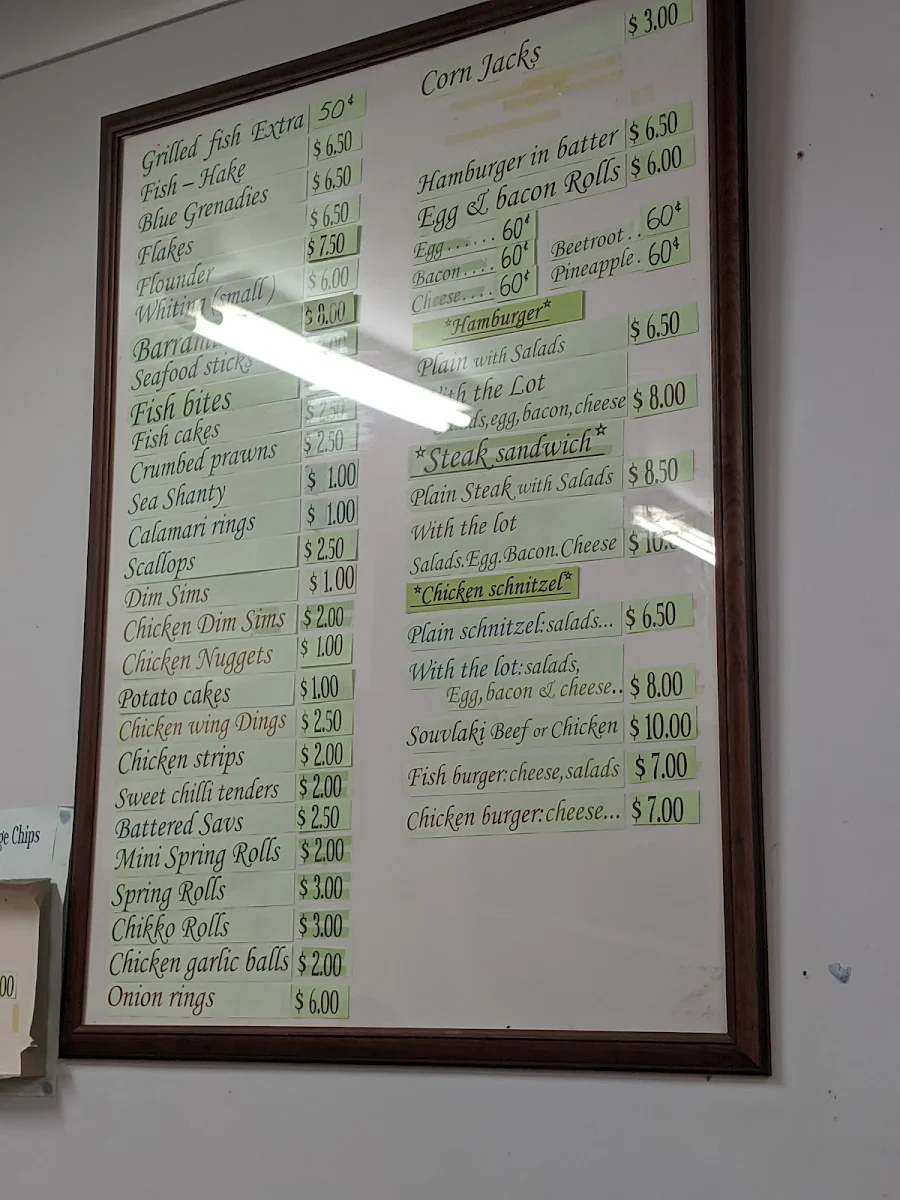 Grilled fish Extra 50¢
Fish – Hake $6.50
Blue Grenadies $6.50
Flakes $6.50
Flounder $7.50
Whiting (small) $6.00
$8.00
Seafood sticks
Fish bites
Fish cakes $2.50
Crumbed prawns $2.50
Sea Shanty $1.00
Calamari rings $1.00
Scallops $2.50
Dim Sims $1.00
Chicken Dim Sims $2.00
Chicken Nuggets $1.00
Potato cakes $1.00
Chicken wing Dings $2.50
Chicken strips $2.00
Sweet chilli tenders $2.00
Battered Savs $2.50
Mini Spring Rolls $2.00
Spring Rolls $3.00
Chikko Rolls $3.00
Chicken garlic balls $2.00
Onion rings $6.00
Corn Jacks $3.00
Hamburger in batter $6.50
Egg & bacon Rolls $6.00
Egg...... 60¢ Beetroot.. 60¢
Bacon.... 60¢ Pineapple. 60¢
Cheese.... 60¢
*Hamburger*
Plain with Salads $6.50
With the Lot
egg,bacon,cheese $8.00
*Steak sandwich*
Plain Steak with Salads $8.50
With the lot
Salads.Egg.Bacon.Cheese
*Chicken schnitzel*
Plain schnitzel:salads... $6.50
With the lot:salads,
Egg,bacon & cheese.. $8.00
Souvlaki Beef or Chicken $10.00
Fish burger:cheese,salads $7.00
Chicken burger:cheese... $7.00
Chips